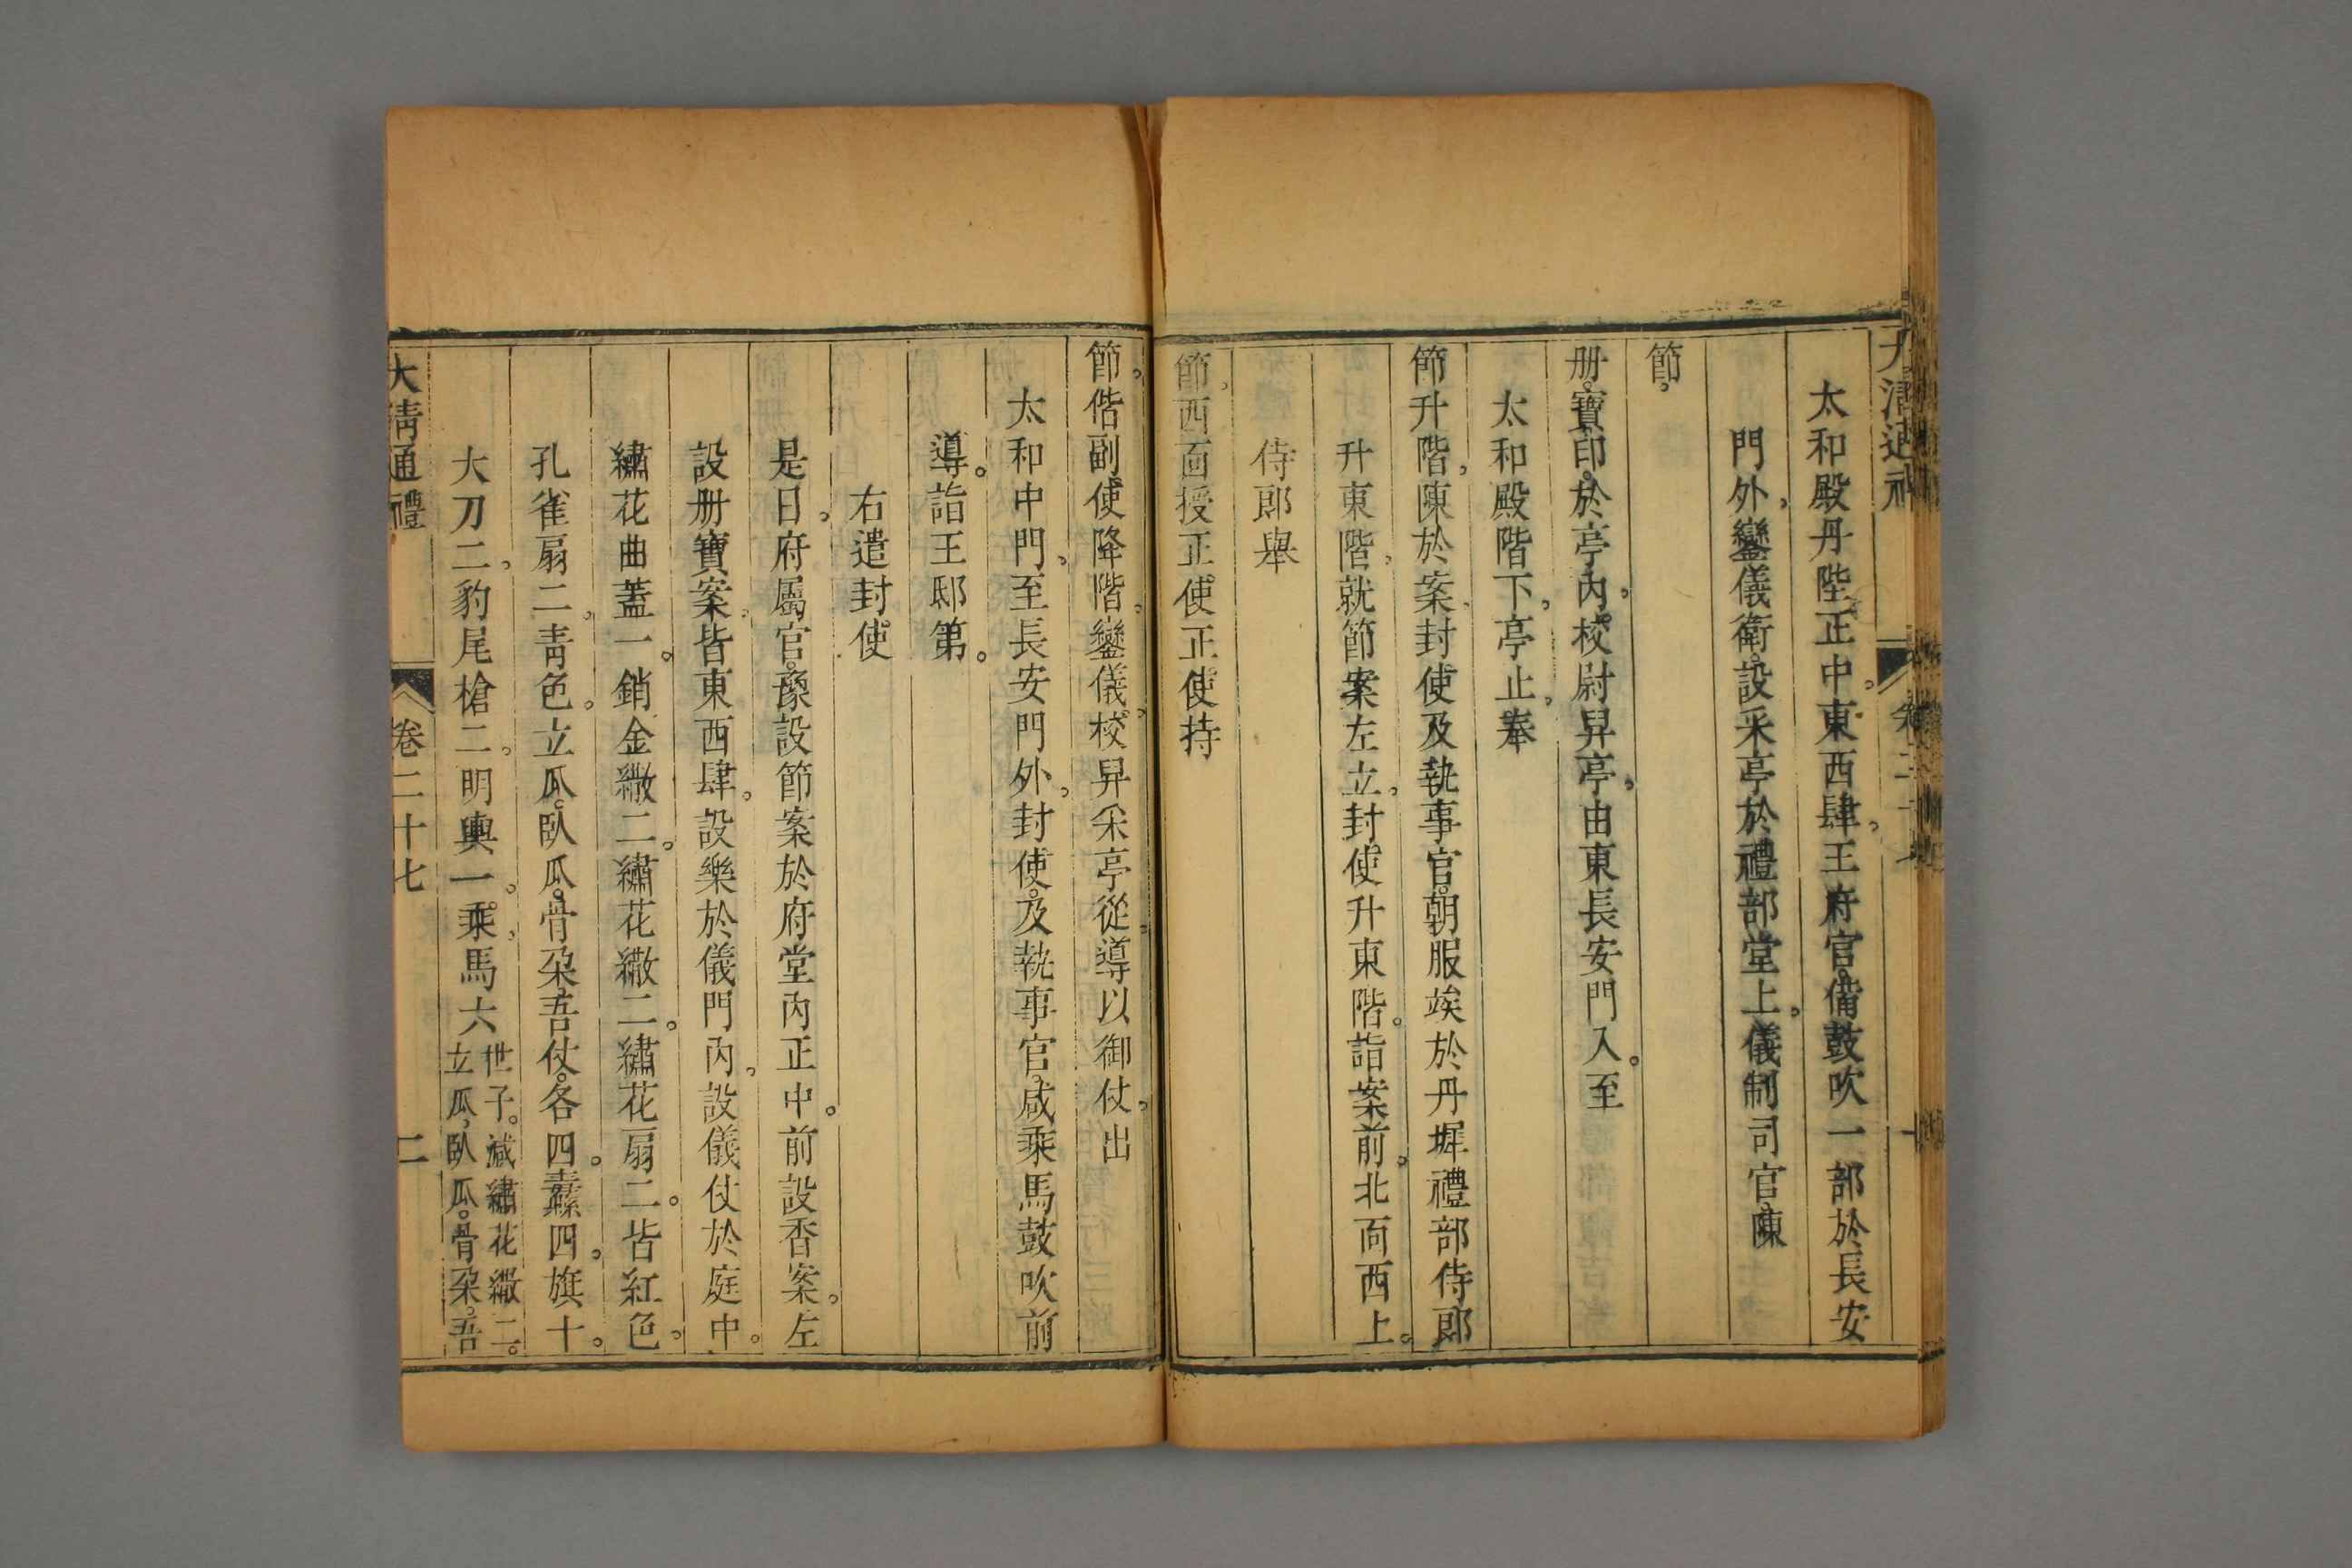 大清通禮 卷二十七 一
太和殿丹陛正中。東西肆。王府官。備鼓吹一部於長安
門外。鑾儀衛。設采亭於禮部堂上。儀制司官。陳
節。
册。寶印。於亭內。校尉舁亭。由東長安門入。至
太和殿階下。亭止。奉
節升階。陳於案。封使及執事官。朝服竢於丹墀。禮部侍郎
升東階。就節案左立。封使升東階。詣案前。北面西上。
侍郎舉
節。西面授正使。正使持
節。偕副使降階。鑾儀校舁采亭從。導以御仗。出
太和中門。至長安門外。封使。及執事官。咸乘馬鼓吹前
導。詣王邸第。
右遣封使
是日。府屬官。豫設節案於府堂內正中。前設香案。左
設册寶案。皆東西肆。設樂於儀門內。設儀仗於庭中。
繡花曲蓋一。銷金繖二。繡花繖二。繡花扇二。皆紅色。
孔雀扇二。青色。立瓜。臥瓜。骨朶。吾仗。各四。纛四。旗十。
大刀二。豹尾槍二。明輿一。乘馬六 世子。減繡花繖二。立瓜。臥瓜。骨朶。吾
大清通禮 卷二十七 二